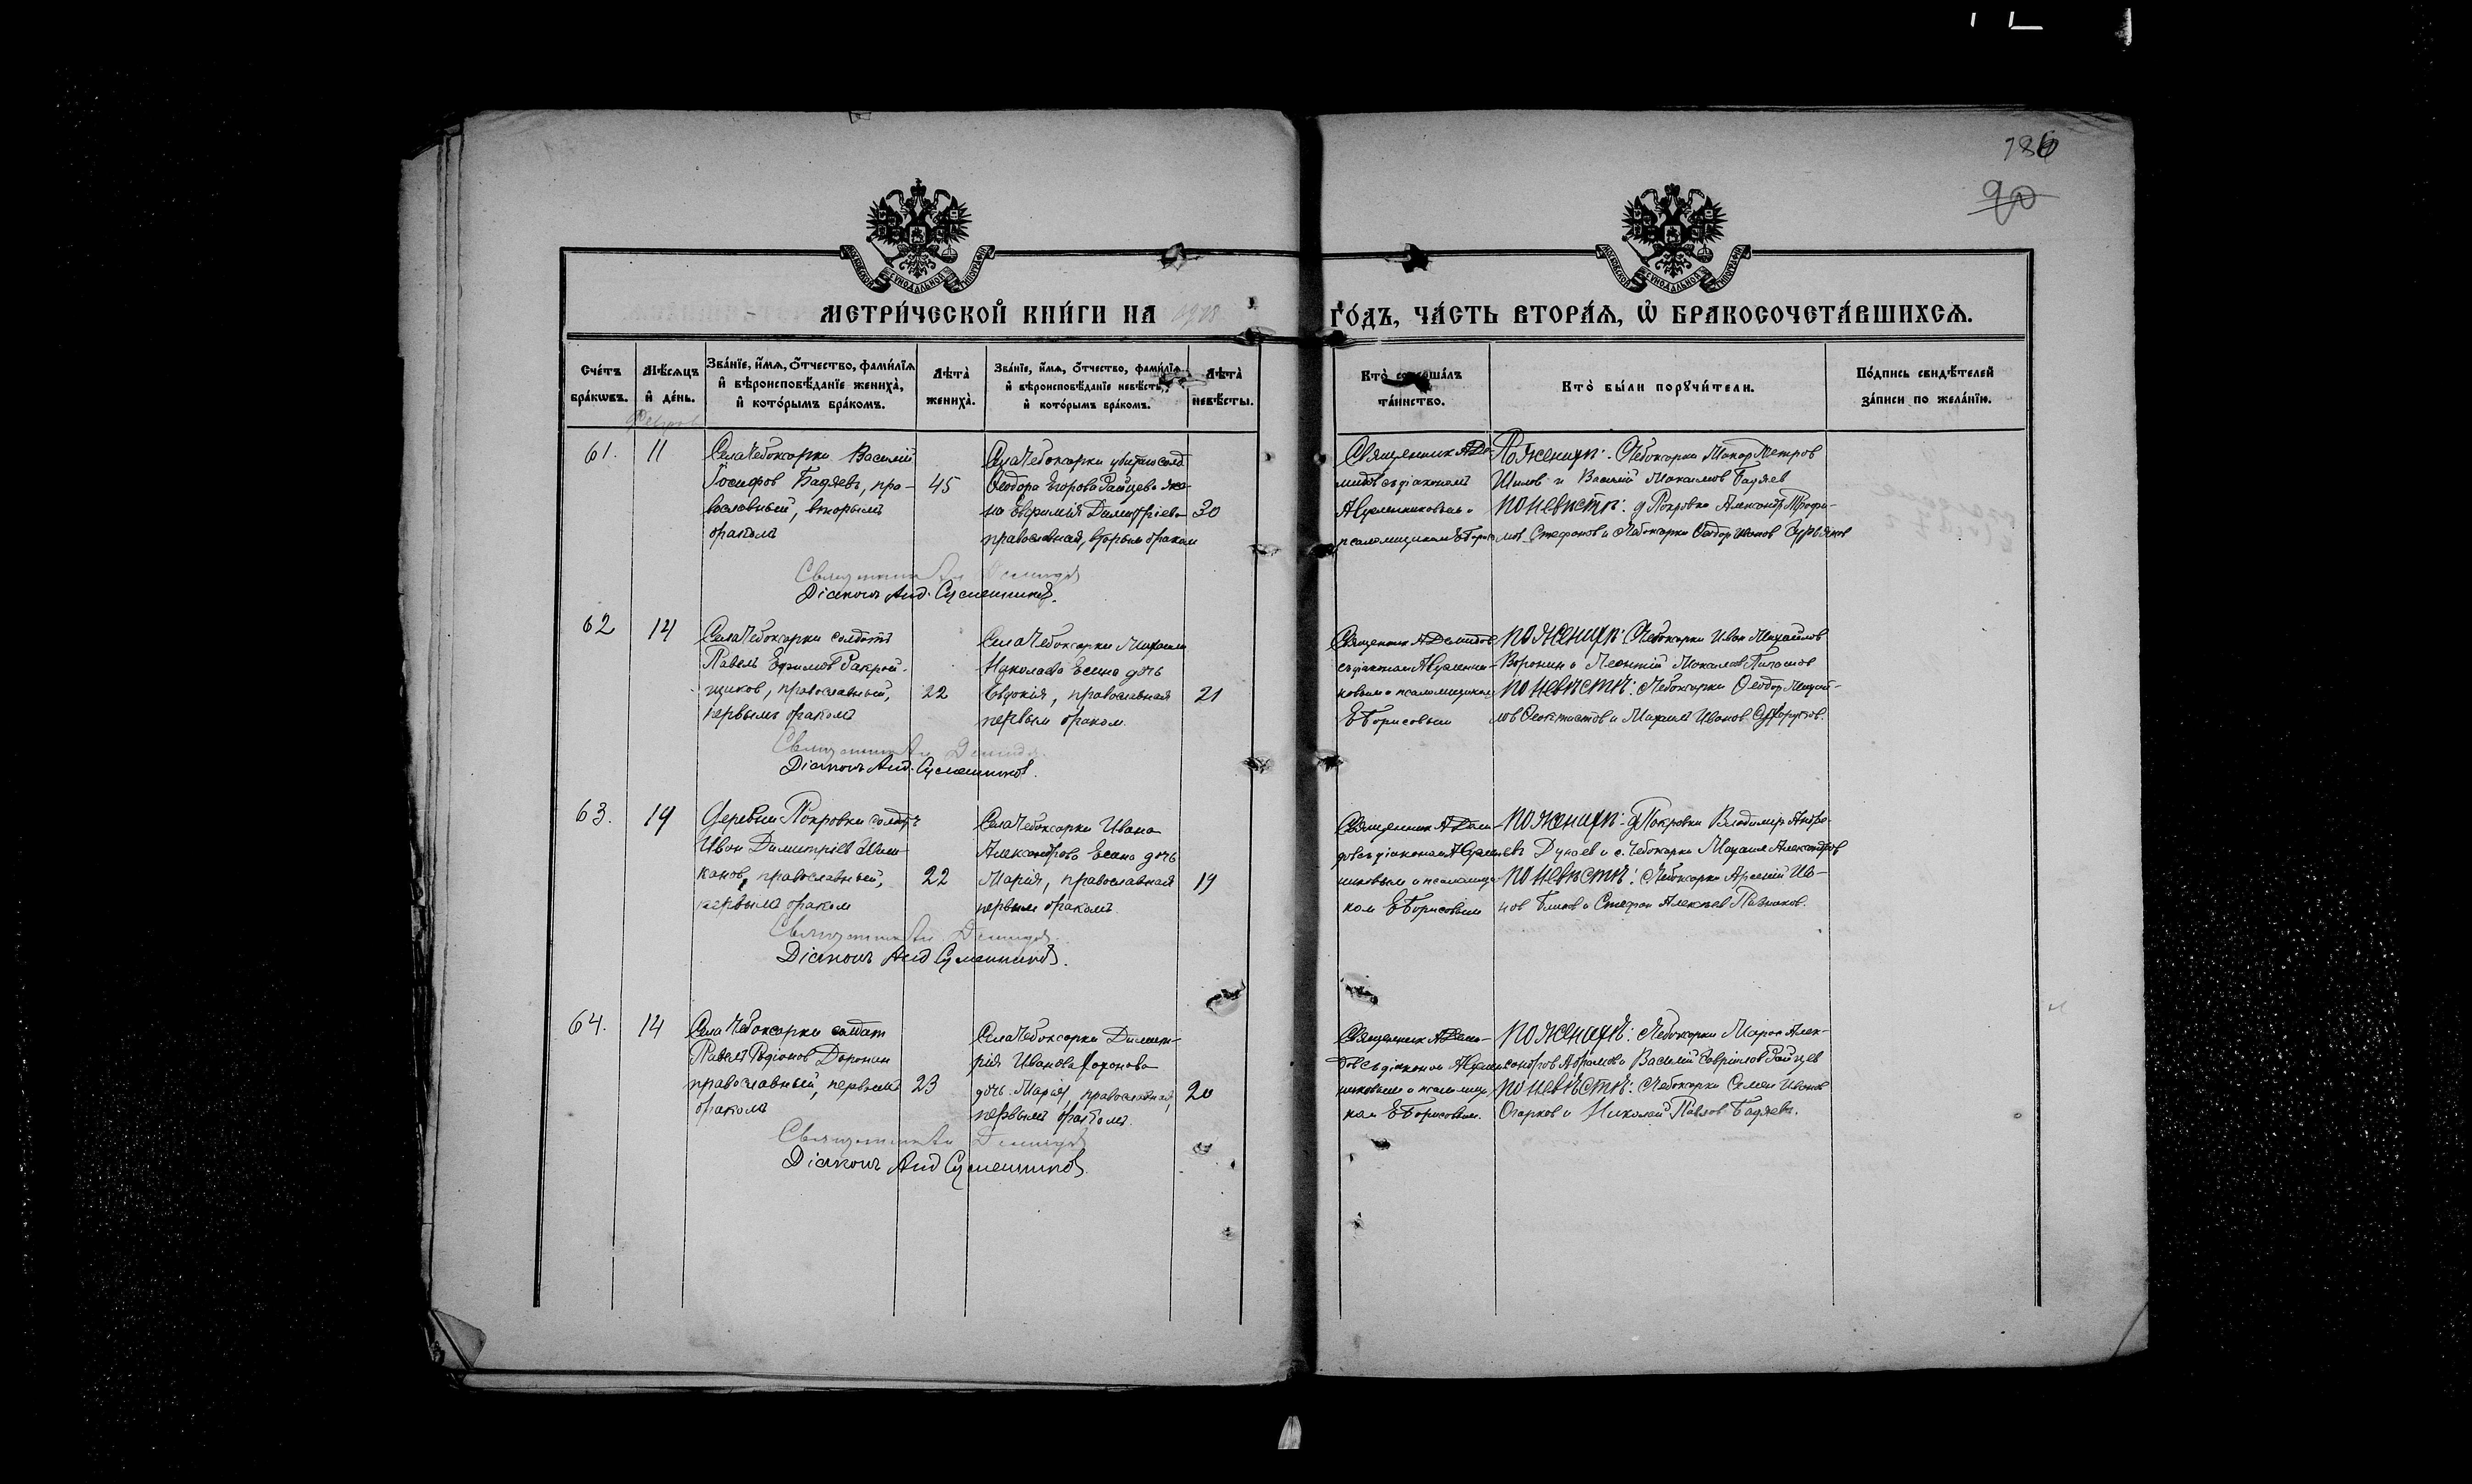 186
90
МОСКОВСКОЙ СѴНОДАЛЬНОЙ ТИПОГРАФІИ
МОСКОВСКОЙ СѴНОДАЛЬНОЙ ТИПОГРАФІИ
МЕТРИ́ЧЕСКОЙ КНИ́ГИ НА 1918 ГО́ДЪ, ЧА́СТЬ ВТОРА́Ѧ, Ѡ҆ БРАКОСОЧЕТА́ВШИХСѦ.
Сче́тъ бра́кѡвъ.
Мѣ́сѧцъ и҆ де́нь.
Зва́нїе, и҆́мѧ, ѻ҆́тчество, фами́лїѧ
и҆ вѣроисповѣ́данїе жениха̀,
и҆ кото́рымъ бра́комъ.
Лѣта̀ жениха̀.
Зва́нїе, и҆́мѧ, ѻ҆́тчество, фами́лїѧ
и҆ вѣроисповѣ́данїе невѣ́сты,
и҆ кото́рымъ бра́комъ.
Лѣта̀ невѣ́сты.
Кто̀ соверша́лъ
та́инство.
Кто̀ бы́ли порꙋчи́тели.
По́дпись свидѣ́телей
за́писи по жела́нїю.
Феврал
61.
11
Села Чебоксарки Василій
Іосифов Бадяевъ, пра-
вославный, вторымъ
бракомъ
45
Села Чебоксарки убитаго солд
Ѳеодора Егорова Зайцева же-
на Евфимія Димитріева
православная, вторым браком
30
Священник А Де-
мидовъ съ діакономъ
псаломщиком Е Борис
По женихѣ: с Чебоксарки Макар Петров
Шилов и Василій Максимов Бадяев
По невѣстѣ: д Покровки Александръ Трофи-
мов Стефанов и с Чебоксарки Ѳеодор Иванов
Священник Ан Демидов
Діаконъ Анд.
62
14
Села Чебоксарки солдатъ
Павелъ Ефимов Закрой-
щиков, православный,
первымъ бракомъ
22
Села Чебоксарки Михаила
Николаева Есина дочь
Евдокія, православная
первым браком.
21
Священник А Демидов
съ діаконом
ковым и псаломщиком
Е Борисовым
По женихѣ: с Чебоксарки Иван Михайлов
Воронин и Леонтій Максимов
По невѣстѣ: с Чебоксарки Ѳеодор Михай-
лов Ѳеоктистов и Михаилъ Иванов
Священник Ан Демидов
Діаконъ Анд.
63.
14
Деревни Покровки солдатъ
Иван Димитріев
канов, православный,
первымъ браком
22
Села Чебоксарки Ивана
Александрова Есина дочь
Марія, православная
первым бракомъ.
19
Священник А Деми-
довъ съ діаконом
никовым и псаломщи
ком Е Борисовым
По женихѣ: д Покровки Владимір Андре-
евъ Дунаев и с. Чебоксарки Михаил Александров
По невѣстѣ: с Чебоксарки Арсеній Ив-
нов Блинов и Стефан Алексѣев
Священник Ан Демидов
Діаконъ Анд
64.
14
Села Чебоксарки солдат
Павелъ Родіонов Доронин
православный, первымъ
бракомъ
23
Села Чебоксарки Димит-
рія Иванова
дочь Марія, православная,
первымъ бракомъ.
20
Священник А Деми-
довъ съ діаконом
никовым и псаломщи
ком Е Борисовым.
По женихѣ: с Чебоксарки Марк Алек-
сандров Абрамов и Василій Гаврилов Зайцев
По невѣстѣ: с Чебоксарки Семен Иванов
Огарков и Николай Павлов Бадяевъ.
Священник Ан Демидов
Діаконъ Анд